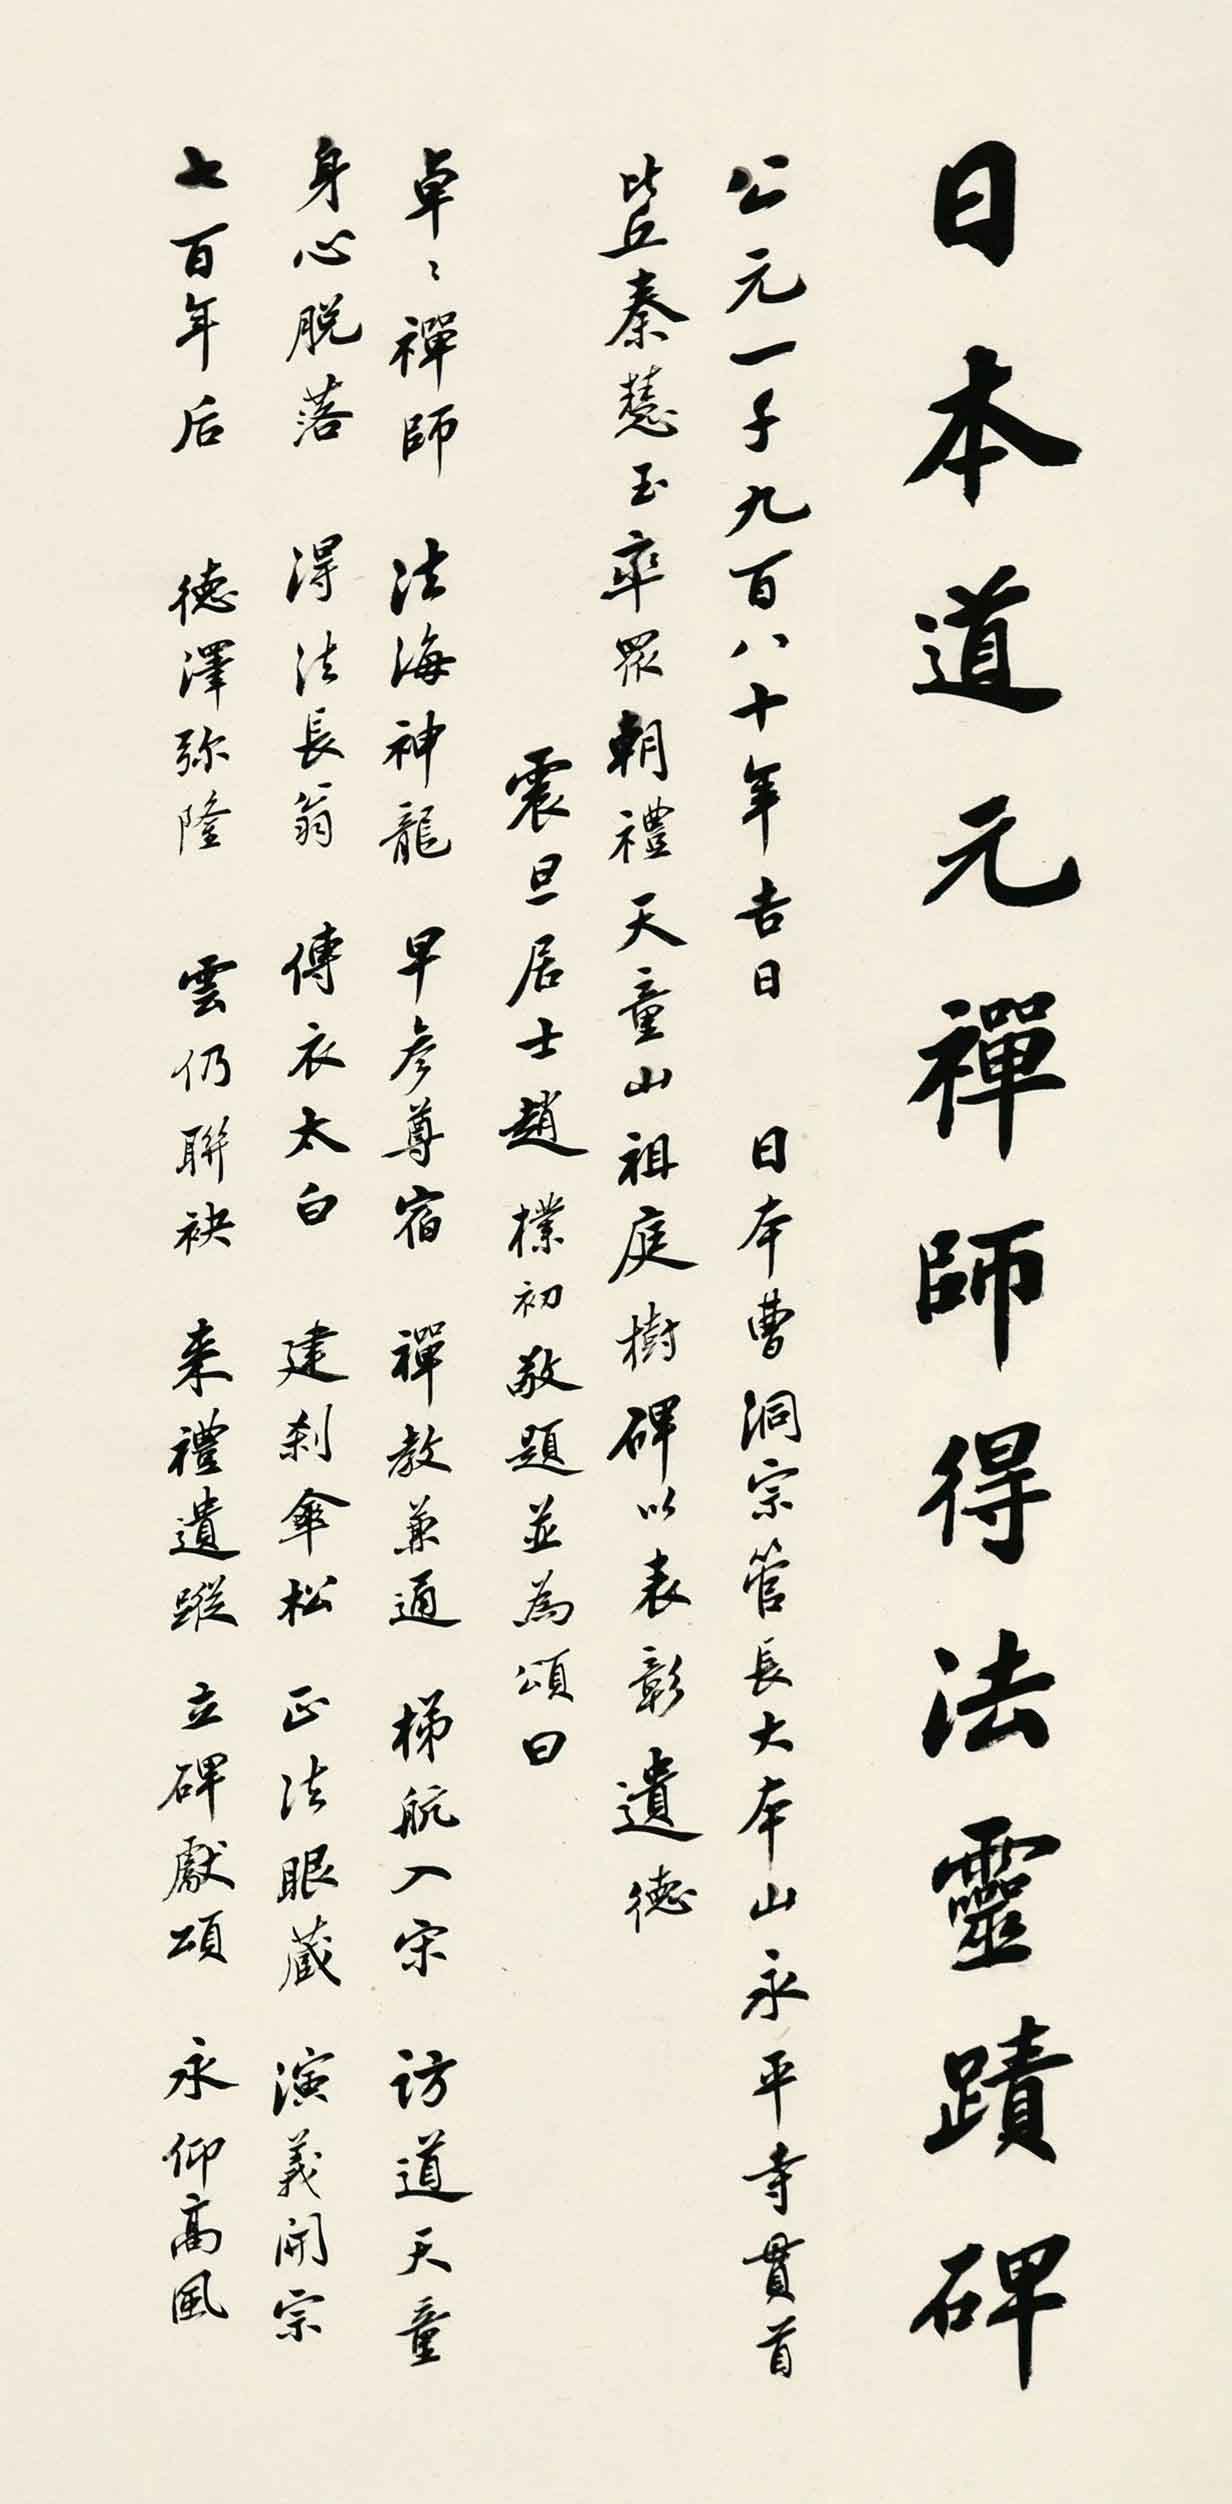 日本道元禪師得法靈蹟碑
公元一千九百八十年吉日 日本曹洞宗管長大本山永平寺貫首
比丘秦慧玉率眾朝禮天童山祖庭樹碑以表彰遺德
震旦居士趙樸初敬題並為頌曰
卓〻禪師 法海神龍 早參尊宿 禪教兼通 梯航入宋 訪道天童
身心脱落 得法長翁 傳衣太白 建刹傘松 正法眼藏 演義開宗
七百年后 德澤弥隆 雲仍聯袂 来禮遺蹤 立碑獻頌 永仰高風